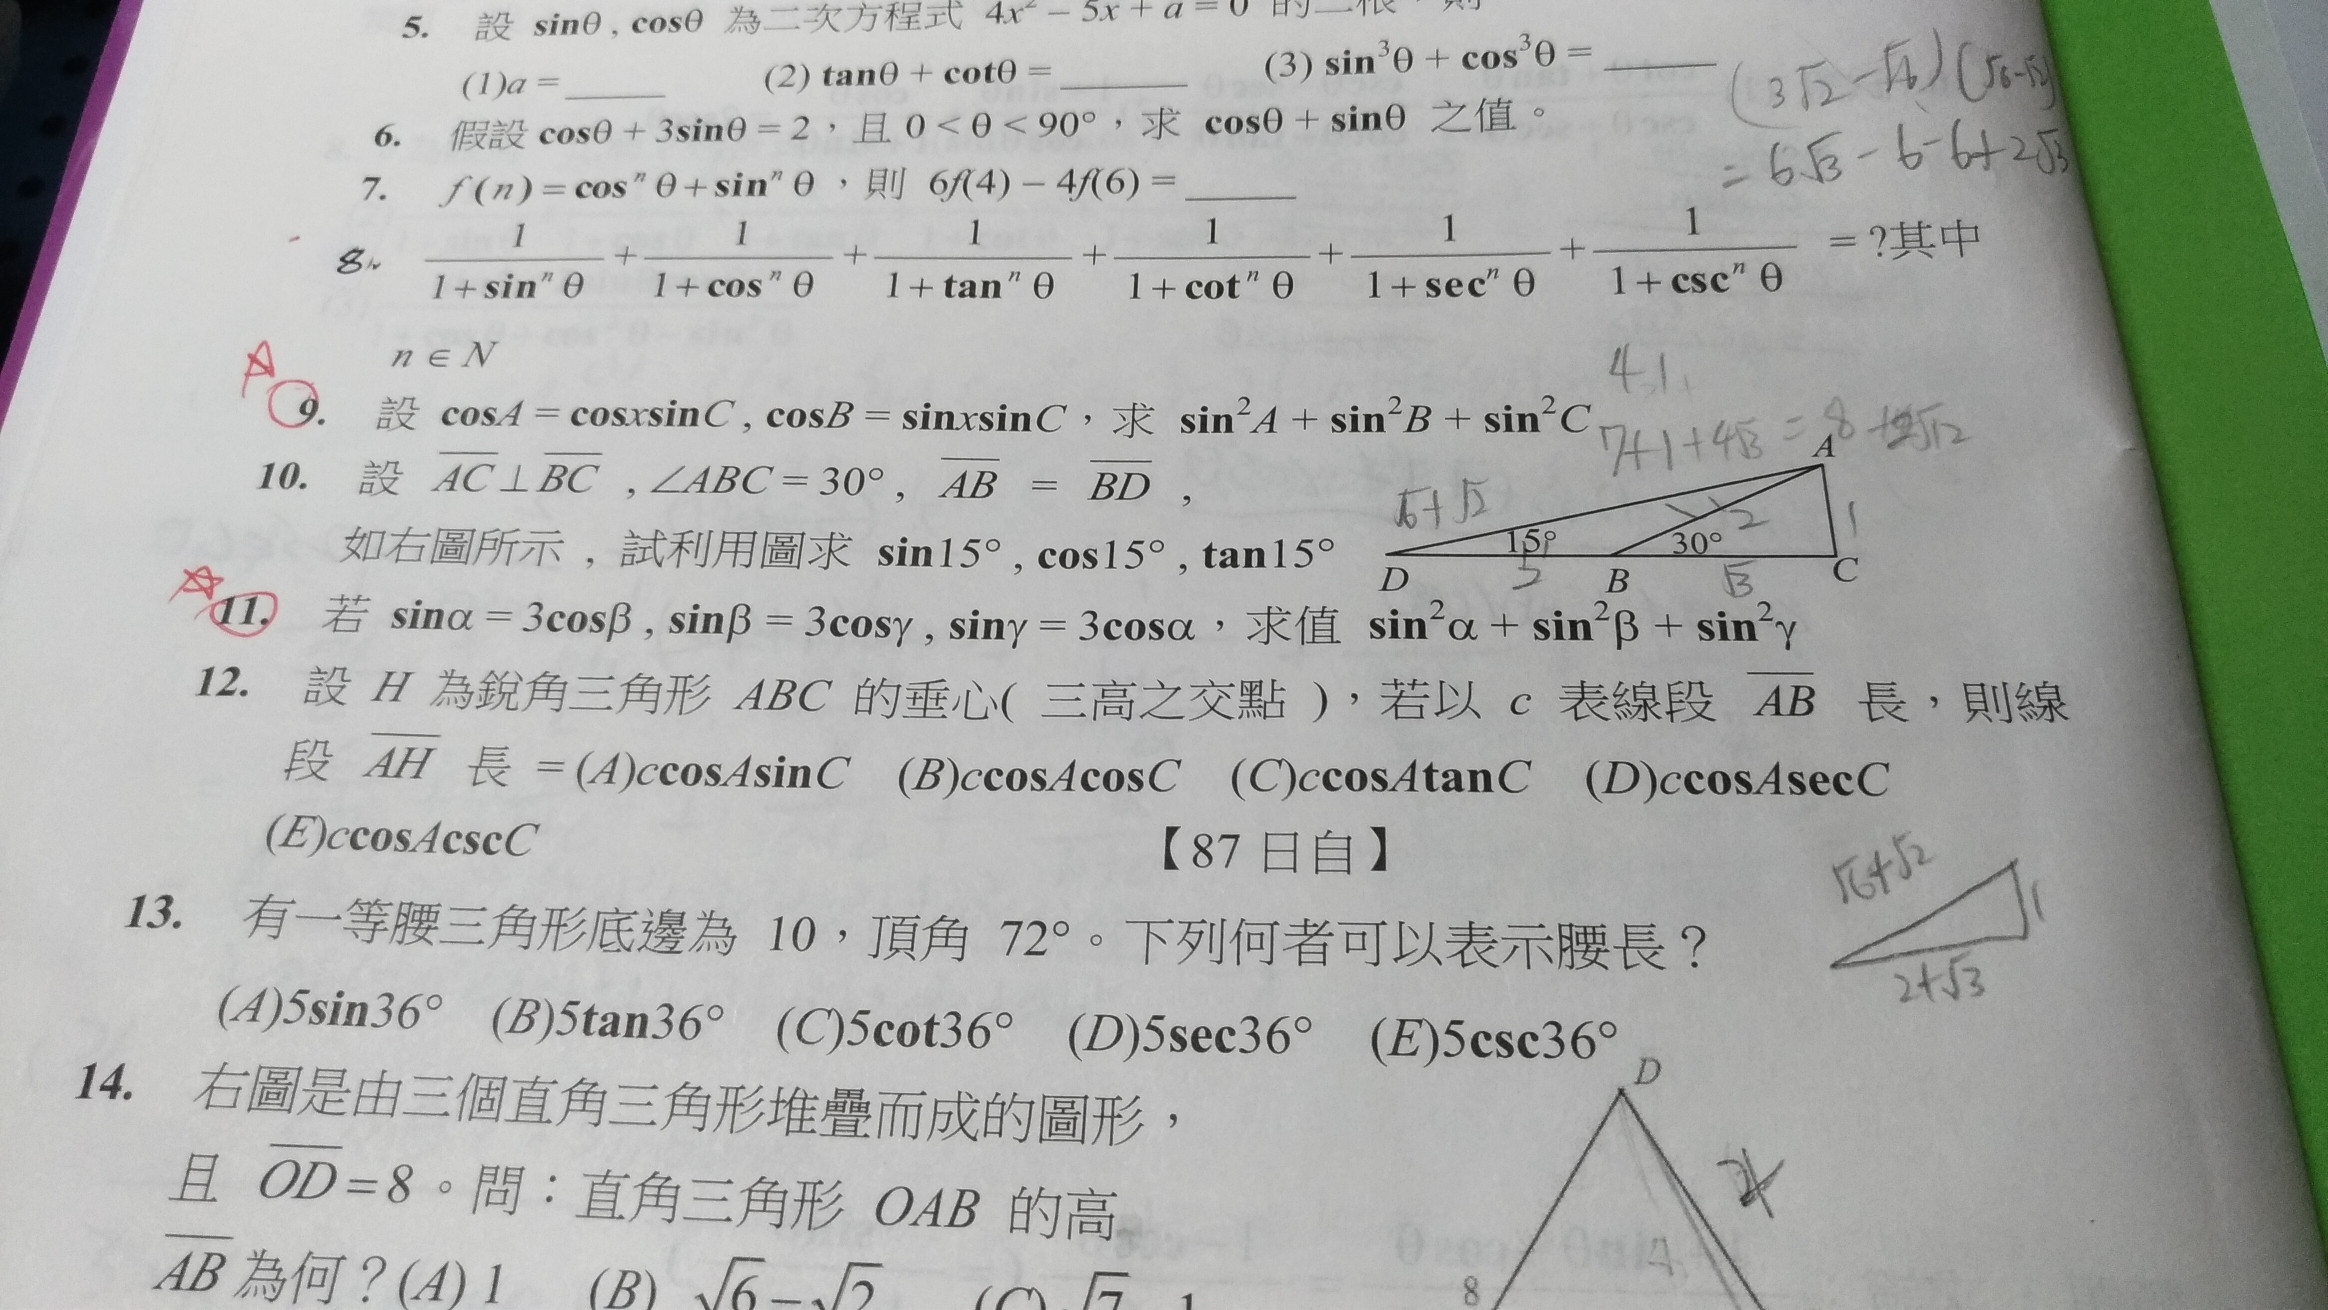 5. 設 sinθ , cosθ 為二次方程式 4x² − 5x + a = 0 的二根，則
(1)a = ____ (2) tanθ + cotθ = ____ (3) sin³θ + cos³θ = ____
(3√2 − √6) (√6−√2)
6. 假設 cosθ + 3sinθ = 2，且 0 < θ < 90°，求 cosθ + sinθ 之值。
= 6√3 − 6 − 6 + 2√3
7. f(n) = cosⁿ θ + sinⁿ θ，則 6f(4) − 4f(6) = ____
8. 1/(1+sinⁿ θ) + 1/(1+cosⁿ θ) + 1/(1+tanⁿ θ) + 1/(1+cotⁿ θ) + 1/(1+secⁿ θ) + 1/(1+cscⁿ θ) = ?其中
n ∈ N
9. 設 cosA = cosxsinC , cosB = sinxsinC，求 sin²A + sin²B + sin²C
7+1+4√3 = 8
10. 設 AC ⊥ BC , ∠ABC = 30° , AB = BD ,
如右圖所示 , 試利用圖求 sin15° , cos15° , tan15°
A
√6+√2 2 1
15° 30°
D 2 B √3 C
11. 若 sinα = 3cosβ , sinβ = 3cosγ , sinγ = 3cosα，求值 sin²α + sin²β + sin²γ
12. 設 H 為銳角三角形 ABC 的垂心( 三高之交點 )，若以 c 表線段 AB 長，則線
段 AH 長 = (A)ccosAsinC (B)ccosAcosC (C)ccosAtanC (D)ccosAsecC
(E)ccosAcscC 【87 日自】
13. 有一等腰三角形底邊為 10，頂角 72°。下列何者可以表示腰長？
√6+√2 1
2+√3
(A)5sin36° (B)5tan36° (C)5cot36° (D)5sec36° (E)5csc36°
14. 右圖是由三個直角三角形堆疊而成的圖形，
且 OD = 8。問：直角三角形 OAB 的高
AB 為何？(A) 1 (B) √6 − √2 (C) √7 − 1
D
8